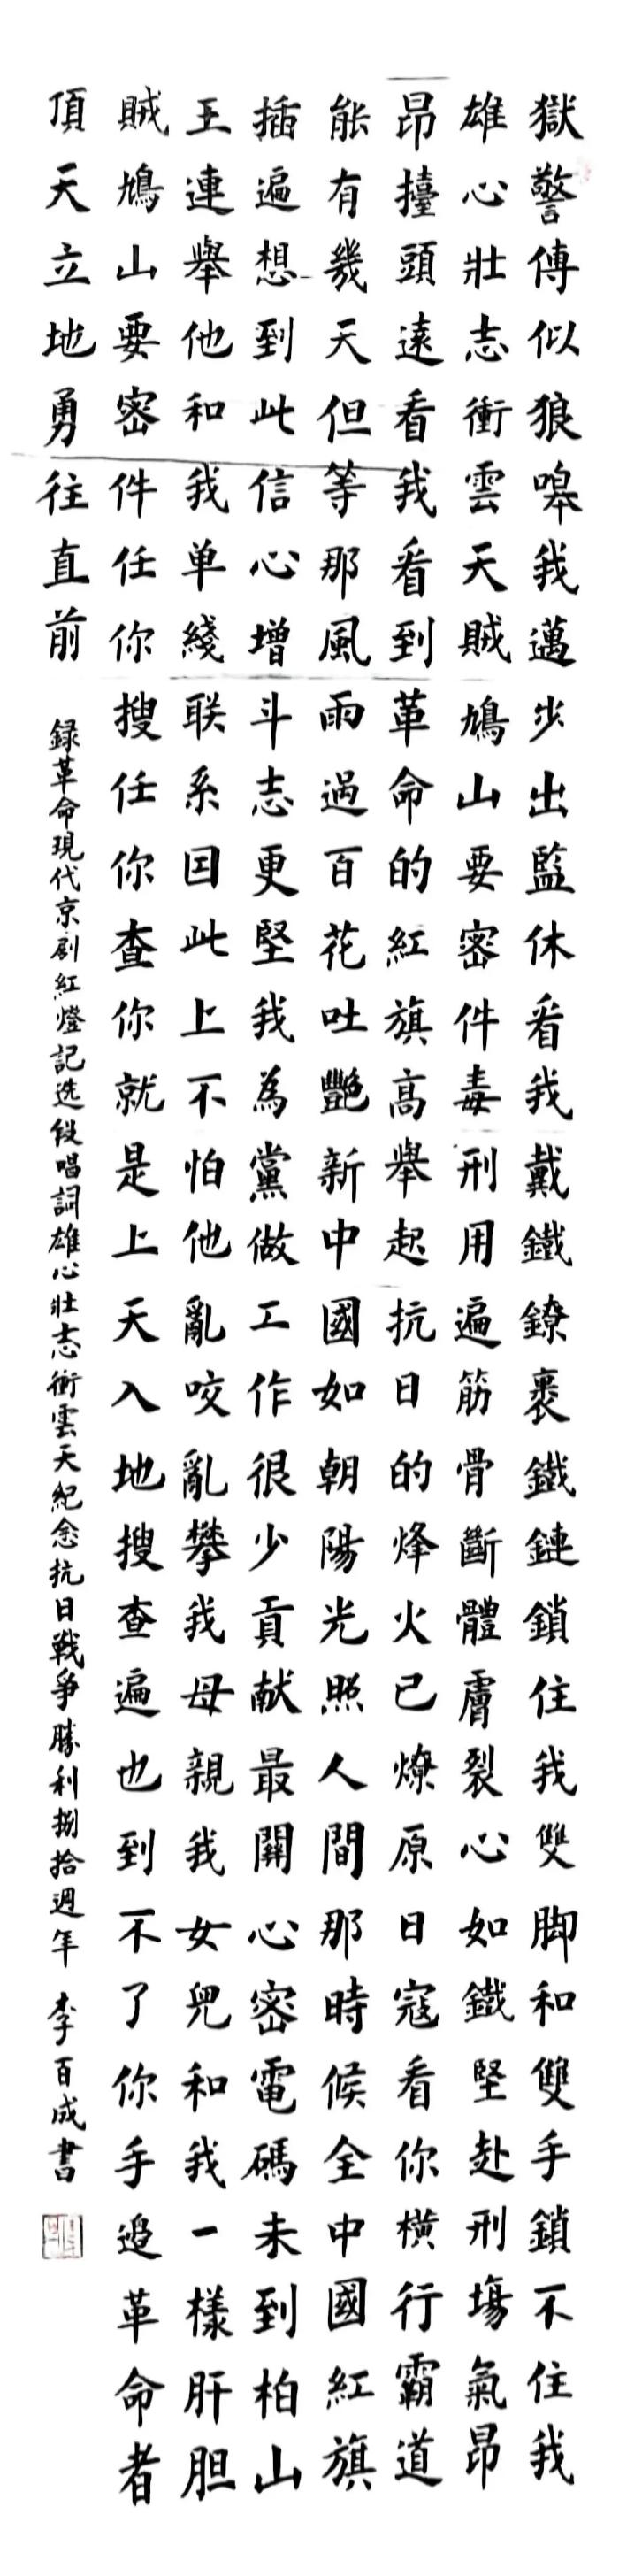 獄警傳似狼嗥我邁步出監休看我戴鐵鐐裹鐵鏈鎖住我雙脚和雙手鎖不住我
雄心壯志衝雲天賊鳩山要密件毒刑用遍筋骨斷體膚裂心如鐵堅赴刑場氣昂
昂擡頭遠看我看到革命的紅旗高舉起抗日的烽火已燎原日寇看你橫行霸道
能有幾天但等那風雨過百花吐艷新中國如朝陽光照人間那時候全中國紅旗
插遍想到此信心增斗志更堅我為黨做工作很少貢献最關心密電碼未到柏山
王連舉他和我单綫联系因此上不怕他亂咬亂攀我母親我女兒和我一樣肝胆
賊鳩山要密件任你搜任你查你就是上天入地搜查遍也到不了你手邊革命者
頂天立地勇往直前
録革命現代京剧紅燈記选段唱詞雄心壯志衝雲天紀念抗日戰爭勝利捌拾週年 李百成書